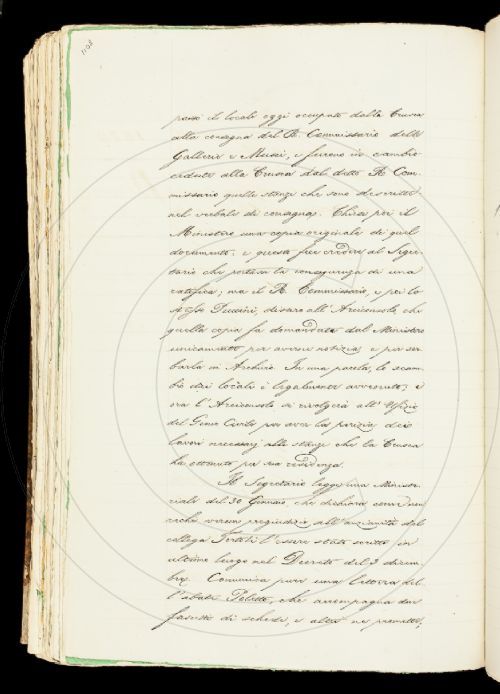 1108
passò il locale oggi occupato dalla Crusca
alla consegna del R. Commissario delle
Gallerie e Musei, e furono in cambio
cedute alla Crusca dal detto R. Com-
missario quelle stanze che sono descritte
nel verbale di consegna. Chiese poi il
Ministero una copia originale di quel
documento, e questo fece credere al Segre-
tario che portava la conseguenza di una
ratifica; ma il R. Commissario, e poi lo
stesso Puccini, dissero all'Arciconsolo, che
quella copia fu domandata dal Ministero
unicamente per averne notizia e per ser-
barla in Archivio. In una parola, lo scam-
bio dei locali è legalmente avvenuto; e
ora l'Arciconsolo si rivolgerà all'Ufizio
del Genio Civile per aver la perizia dei
lavori necessarj alle stanze che la Crusca
ha ottenuto per sua residenza.
Il Segretario legge una Ministe-
riale del 30 Gennaio, che dichiara come non
rechi verun pregiudizio all'anzianità del
collega Tortoli l'essere stato scritto in
ultimo luogo nel Decreto del 9 dicem-
bre. Comunica pure una lettera del
l'abate che accompagna un
fascetto di schede, e altre ne promette;